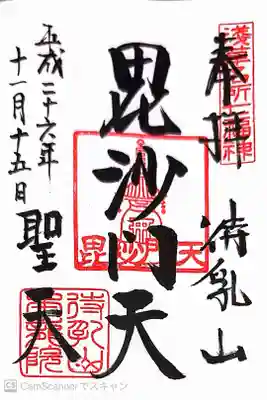 奉拝
待乳山
毘沙門天
聖天
平成二十六年
十一月十五日
浅草名所七福神
毘沙門天
待乳山
本龍院
CS CamScannerでスキャン